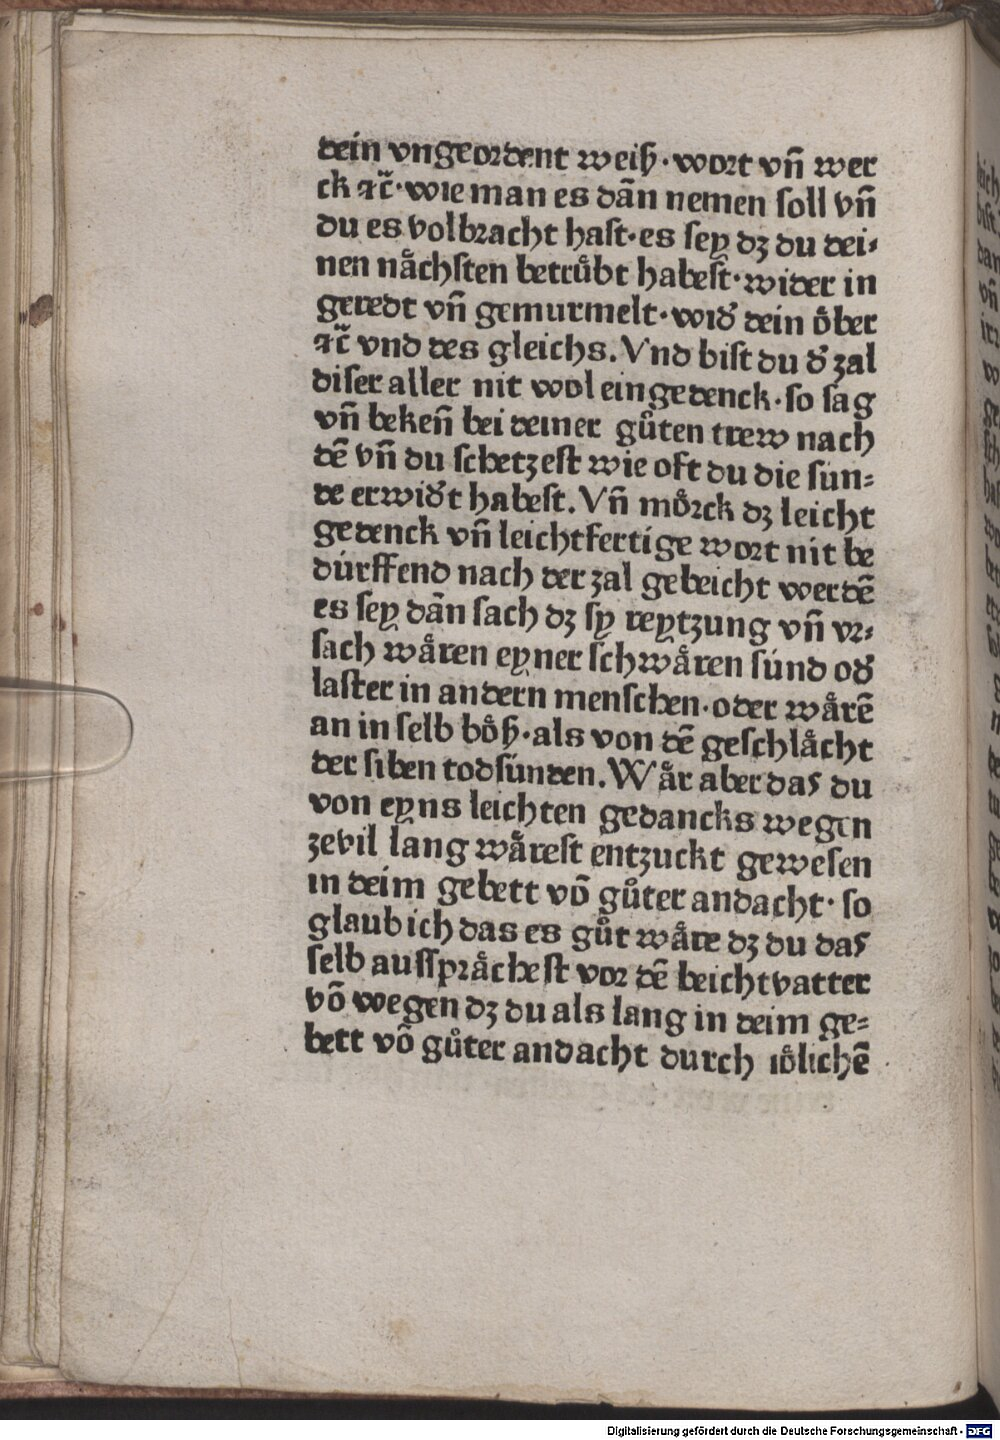 dein vngeordent weiß·wort vn̄ wer
ck ꝛc̈·wie man es dān nemen soll vn̄
du es volbracht hast·es sey dz du dei⸗
nen nåchsten betrůbt habest·wider in
geredt vn̄ gemurmelt·wid̓ dein ôber
ꝛc̈ vnd des gleichs. Vnd bist du d̓ zal
diser aller nit wol eingedenck·so sag
vn̄ beken̄ bei deiner gůten trew nach
dē vn̄ du schetzest wie oft du die sún⸗
de erwid̓t habest. Vn̄ môrck dz leicht
gedenck vn̄ leichtfertige wort nit be
dúrffend nach der zal gebeicht werdē
es sey dān sach dz sy reytzung vn̄ vr⸗
sach wåren eyner schwåren súnd od̓
laster in andern menschen·oder wårē
an in selb bôß·als von dē geschlåcht
der siben todsúnden. Wår aber das du
von eyns leichten gedancks wegen
zevil lang wårest entzuckt gewesen
in deim gebett vō gůter andacht· so
glaub ich das es gůt wåre dz du das
selb ausspråchest vor dē beichtvatter
vō wegen dz du als lang in deim ge⸗
bett vō gůter andacht durch iôlichē
Digitalisierung gefördert durch die Deutsche Forschungsgemeinschaft - DFG